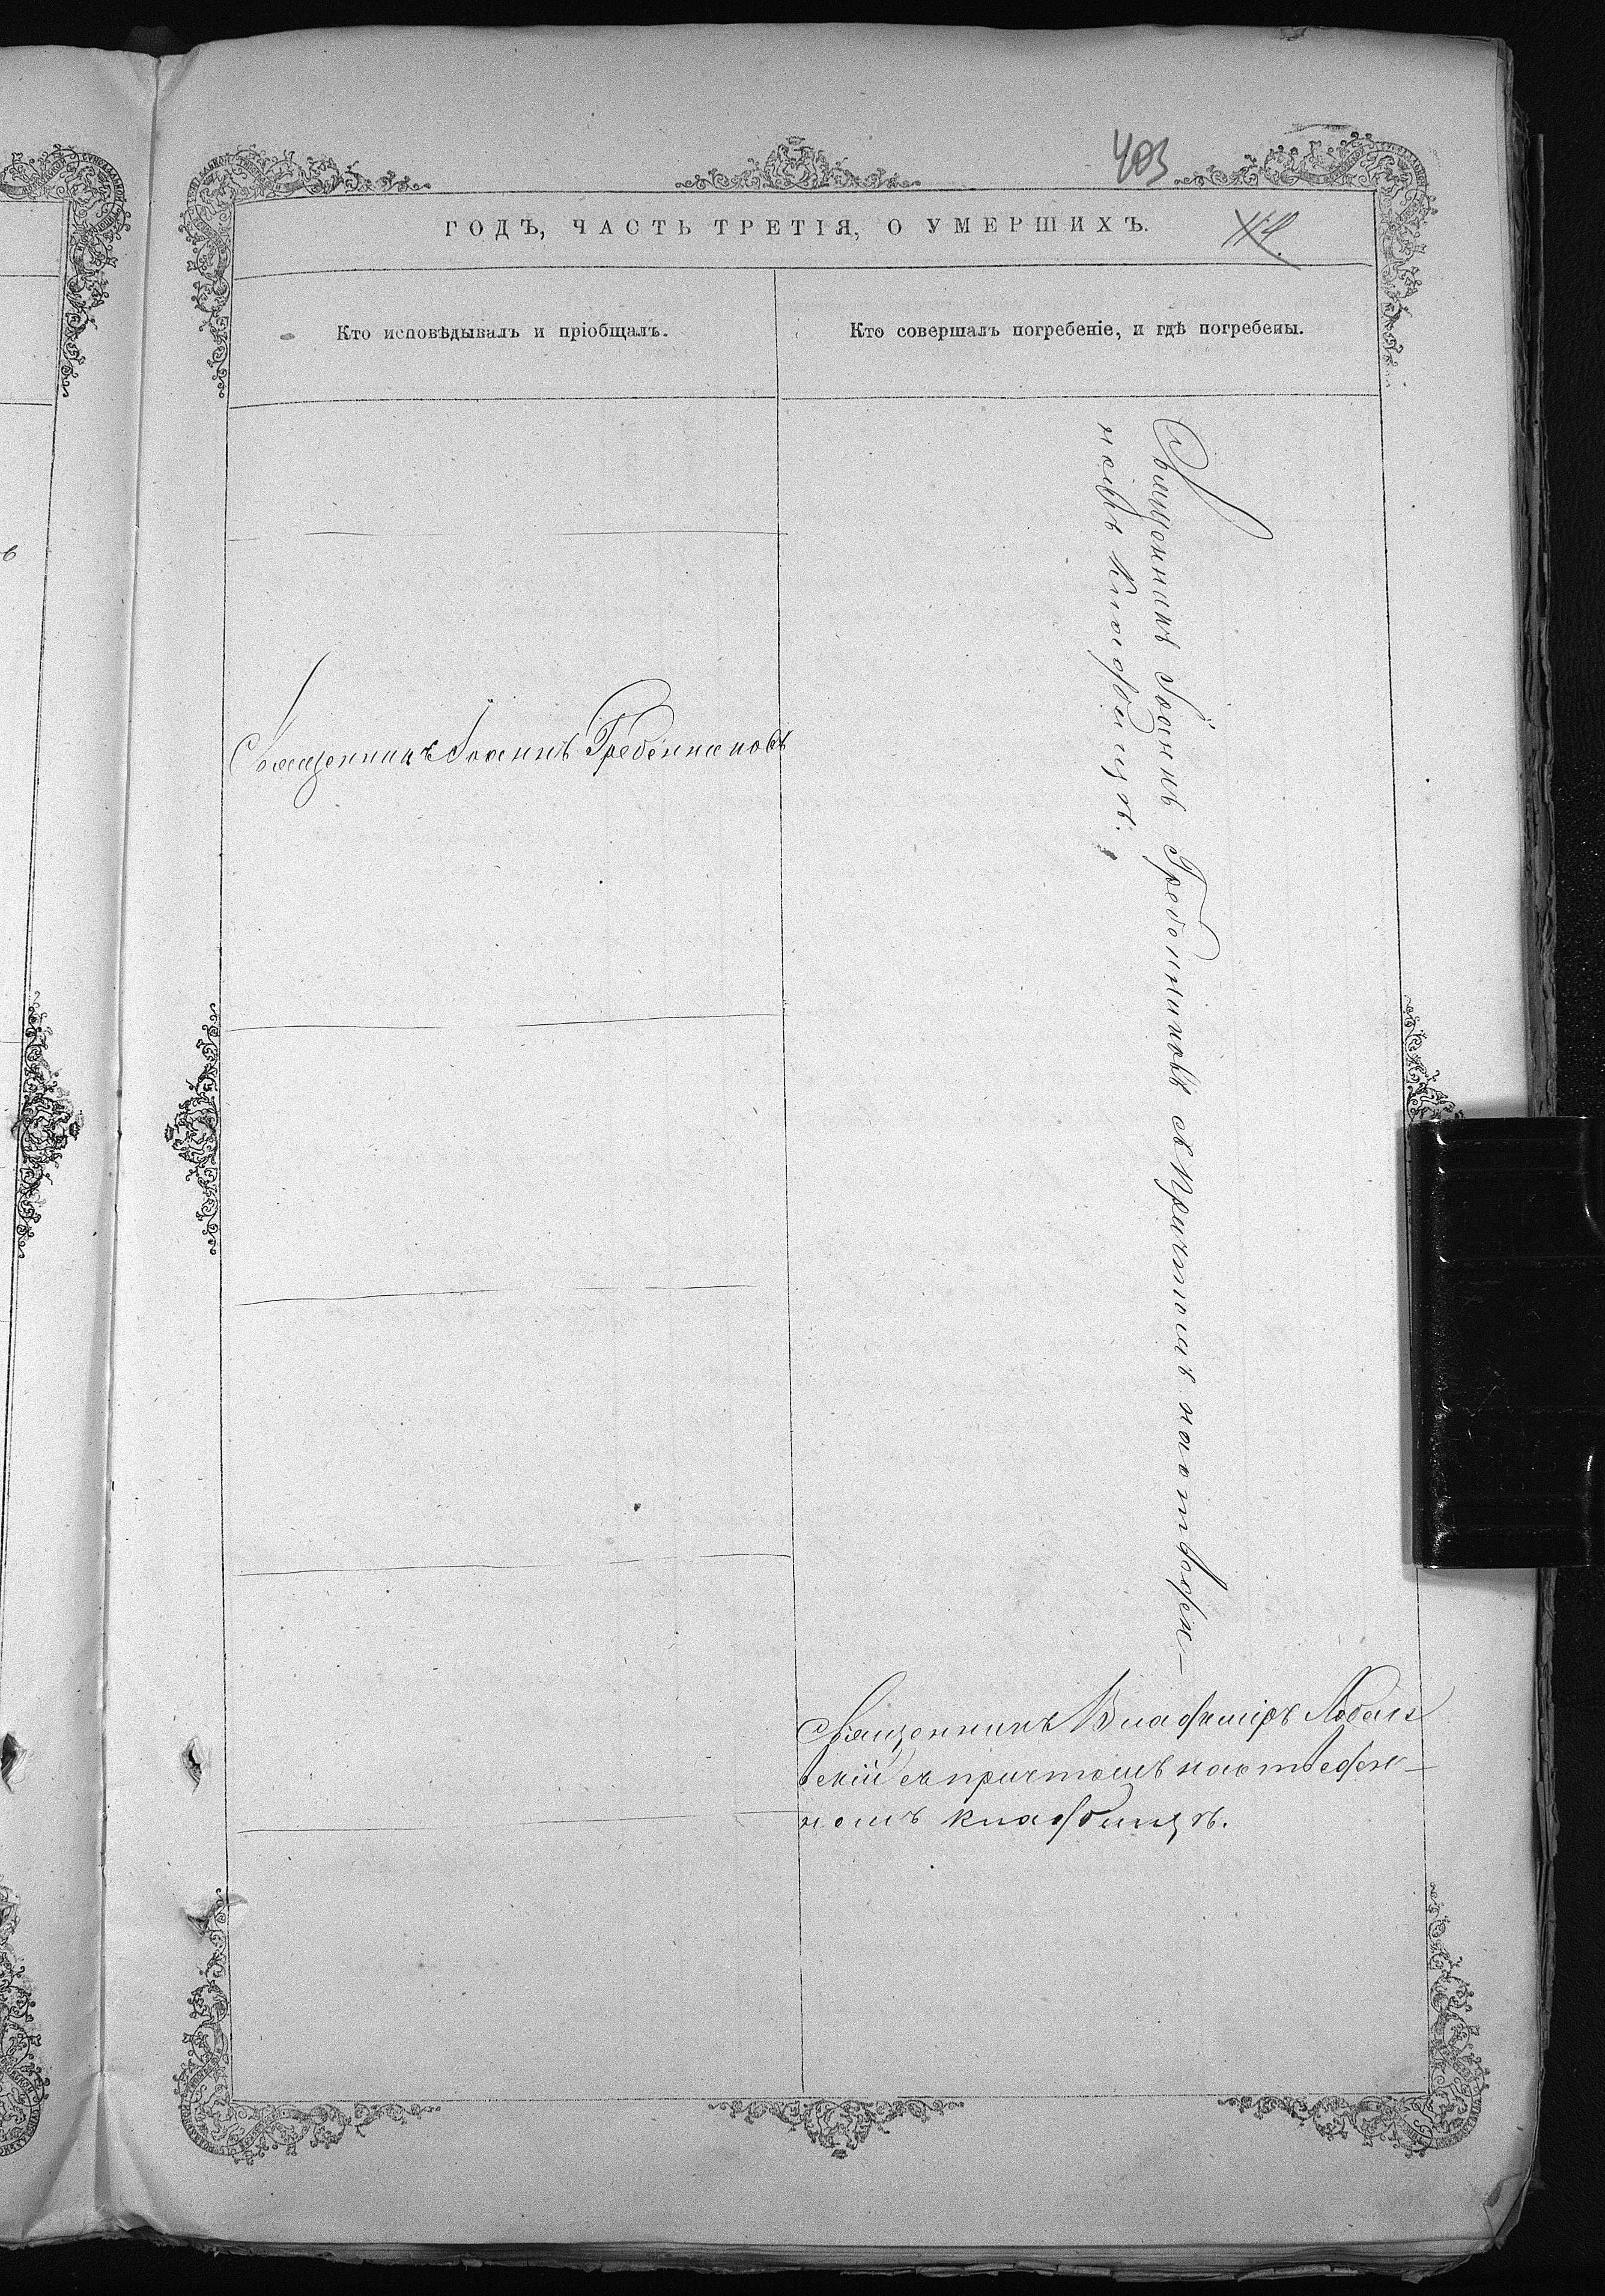 403
ГОДЪ, ЧАСТЬ ТРЕТІЯ, О УМЕРШИХЪ.
Кто исповѣдывалъ и пріобщалъ.
Кто совершалъ погребеніе, и гдѣ погребены.
Священникъ Іоаннъ Гребенниковъ
Священникъ Іоаннъ Гребенниковъ съ причтомъ на отведен-
номъ кладбищѣ.
Священникъ Владиміръ
скій съ причтомъ на отведен-
номъ кладбищѣ.